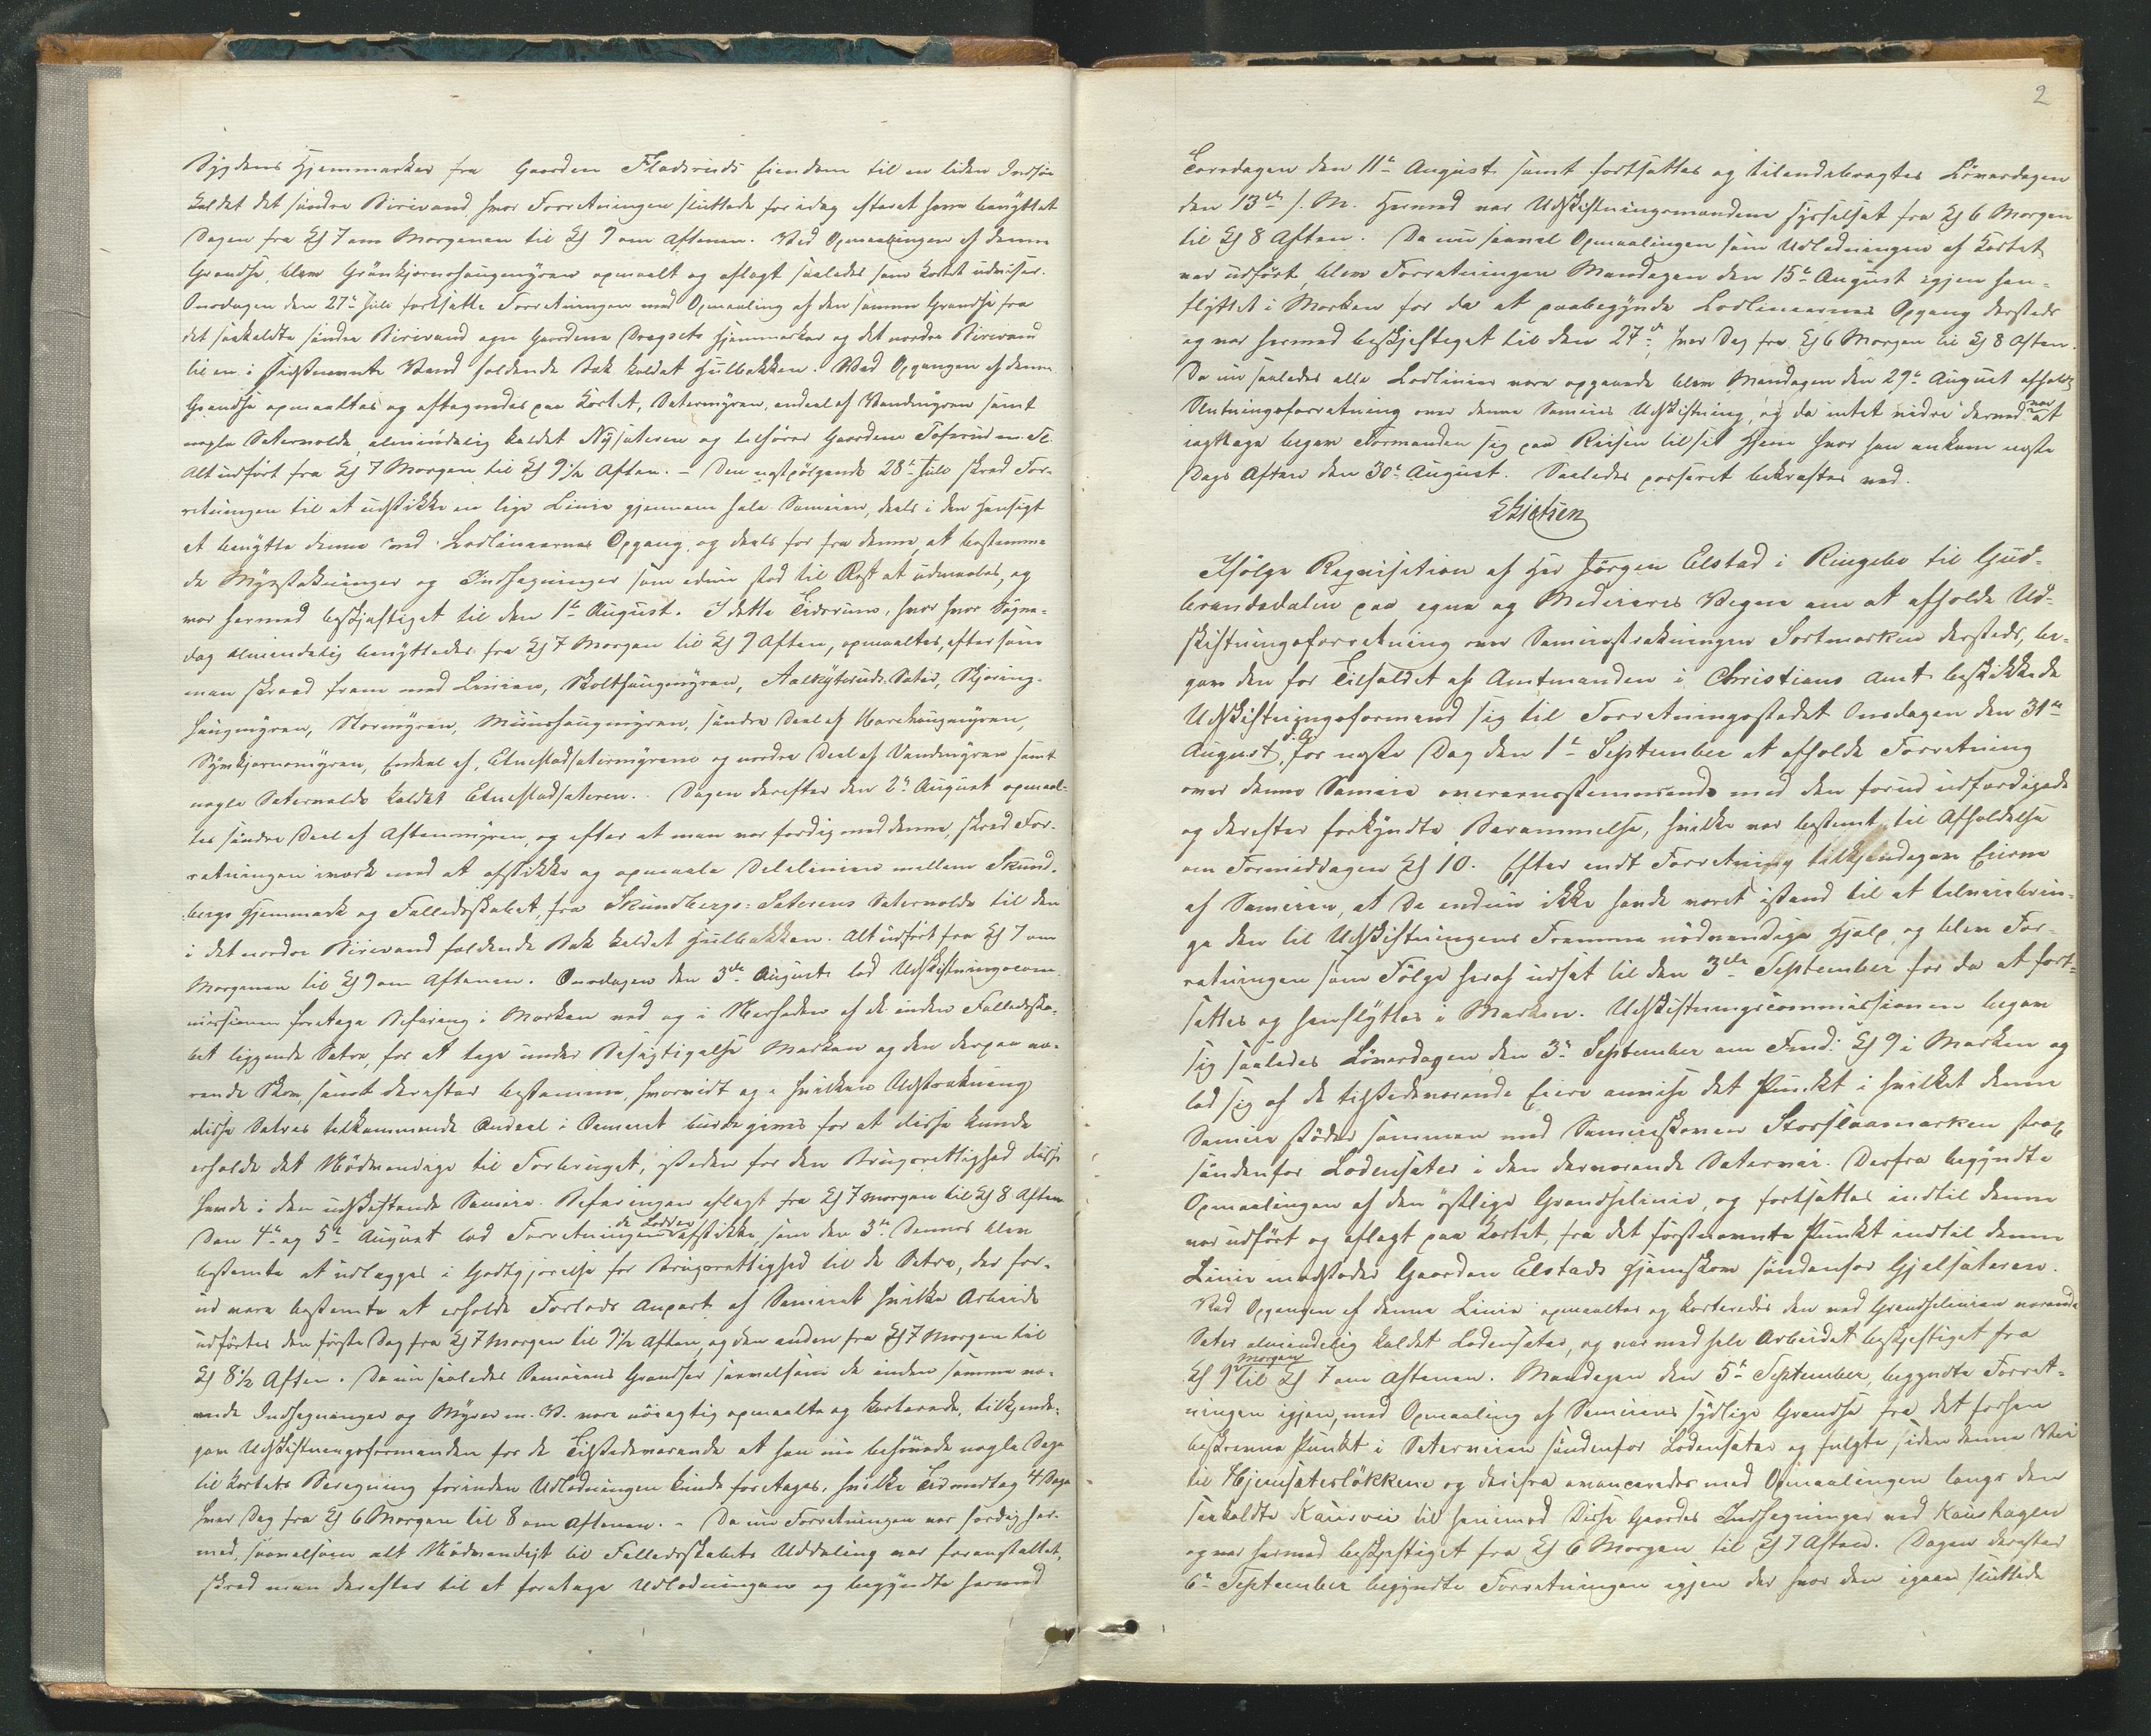 Bygdens Hjemmarker fra Gaarden Fladsruds Eiendom til en liden Indsøe
kaldet det søndre Birivand hvor Forretningen sluttede for idag efterat have benyttet
Dagen fra Kl 7 om Morgenen til Kl 9 om Aftenen. Ved Opmaalingen af denne
Grændse, blev Grønkjernshaugmyren opmaalt og aflagt saaledes som Kortet udviser.
Onsdagen den 27de Juli fortsatte Forretningen med Opmaaling af den samme Grændse fra
det saakaldte søndre Birivand egn Gaardene Dragsets Hjemmarker og det nordre Birivand
til en i Sidstnævnte Vand faldende Bæk kaldet Hulbækken. Ved Opgangen af denne
Grændse opmaaltes og aftegnedes paa Kortet, Sætermyren, endeel af Vandmyren samt
nogle Sætervolde, almindelig kaldet Nysæteren og tilhører Gaardene Tofsrud m. Fl.
Alt udført fra Kl 7 Morgen til Kl 9 1/2 Aften. - Den nestfølgende 28de Juli skred For-
retningen til at udstikke en lige Linie gjennem hele Sameien, deels i den Hensigt
at benytte denne ved Lodliniernes Opgang, og deels for fra denne, at bestemme
de Myrstrækninger og Indhegninger som endnu stod til Rest at udmaales, og
var hermed beskjæftiget til den 1ste August. I dette Tidsrum, hvor hver Søgne-
dag almindelig benyttedes fra Kl 7 Morgen til Kl 9 Aften, opmaaltes, eftersom
man skreed frem med Linien, Skolthaugmyren, Aalkytsruds Sæter, Skjering-
haugmyren, Stormyren, Muushaugmyren, søndre Deel af Harehaugmyren,
Bymkjernsmyren, Endeel af, Elnestadsætermyrene og nordre Deel af Vandmyren samt
nogle Sætervolde kaldet Elnestadsæteren. Dagen derefter den 2den August opmaal-
tes søndre Deel af Aftenmyren, og efter at man var færdig med denne, skred For-
retningen iværk med at afstikke og opmaale Delelinien mellem Skund-
bergs Hjemmark og Fælledsskabet, fra Skundbergs-Sæterens Sætervolde til den
i det nordre Birivand faldende Bæk kaldet Hulbækken. Alt udført fra Kl 7 om
Morgenen til Kl 9 om Aftenen. Onsdagen den 3die August lod Udskiftningscom-
missionen foretage Befaring i Marken ved og i Nærheden af de inden Fælledsska-
bet liggende Sætre, for at tage under Besigtigelse Marken og den derpaa væ-
rende Skov, samt derefter bestemme, hvorvidt og i hvilken Udstrækning
disse Sætres tilkommende Andeel i Sameiet burde gives for at disse kunde
erholde det Nødvendige til Forbruget, isteden for den Brugsrettighed disse
havde i den udskiftende Sameie. Befaringen aflagt fra Kl 7 morgen til Kl 8 Aften
Den 4de og 5te August lod Forretningen de Lodder afstikke, som den 3die Dennes blev
bestemte at udlægges i Godtgjørelse for Brugsrettighed til de Sætre, der for-
ud vare bestemte at erholde Forlods Anpart af Sameiet hvilke Arbeide
udførtes den første Dag fra Kl 7 Morgen til 9 1/2 Aften og den anden fra Kl 7 Morgen til
Kl 8 1/2 Aften. Da nu saaledes Sameiens Grændser saavelsom de inden samme væ-
rende Indhegninger og Myrer m. V. vare nøiagtig opmaalte og karterede, tilkjende-
gav Udskiftningsformanden for de Tilstedeværende at han nu behøvede nogle Dage
til Kortets Beregning forinden Udlodningen kunde foretages, hvilke Tid medtog 4 Dage
hver Dag fra Kl 6 Morgen til 8 om Aftenen. - Da nu Forretningen var færdig her-
med, saavelsom alt Nødvendigt til Fælledsskabets Uddeling var foranstaltet,
skred man derefter til at foretage Udlodningen og begyndte hermed
2
Torsdagen den 11te August samt fortsattes og tilendebragtes Løverdagen
den 13de s. M. Hermed var Udskiftningsmændene sysselsat fra Kl 6 Morgen
til Kl 8 Aften. Da nu saavel Opmaalingen som Udlodningen af Kortet
var udført, blev Forretningen Mandagen den 15de August igjen hen-
flyttet i Marken for da at paabegynde Lodliniernes Opgang dersteds
og var hermed beskjeftiget til den 27de, hver Dag fra Kl 6 Morgen til Kl 8 Aften.
Da nu saaledes alle Lodlinier vare opgaaede blev Mandagen den 29de August afholdt
Slutningsforretning over denne Sameies Udskiftning, og da intet videre dermed var at
iagttage begav Formanden sig paa Reisen til sit Hjem hvor han ankom næste
Dags Aften den 30te August. Saaledes passeret bekræftes ved.
Ifølge Requisition af Hr Jørgen Elstad i Ringebo til Gud-
brandsdalen paa egne og Medeieres Vegne om at afholde Ud-
skiftningsforretning over Sameiestrækningen Sortmarken dersteds, be-
gav den for Tilfældet af Amtmanden i Christians Amt beskikkede
Udskiftningsformand sig til Forretningsstedet Onsdagen den 31te
August d. A. for næste Dag den 1ste September at afholde Forretning
over denne Sameie overeensstemmende med den forud udfærdigede
og derefter forkyndte Berammelse, hvilke var bestemt til Afholdelse
om Formiddagen Kl 10. Efter endt Forretning tilkjendegav Eierne
af Sameien, at De endnu ikke havde været istand til at tilveiebrin-
ge den til Udskiftningens Fremme nødvendige Hjelp, og blev For-
retningen som Følge heraf udsat til den 3die September for da at fort-
sættes og henflyttes i Marken. Udskiftningscommissionen begav
sig saaledes Løverdagen den 3die September om Fmd: Kl 9 i Marken og
lod sig af de tilstedeværende Eiere anvise det Punkt i hvilket denne
Sameie støder sammen med Sameieskoven Storslaamarken strax
søndenfor Lodensæter i den derværende Sætervei. Derfra begyndte
Opmaalingen af den østlige Grændselinie, og fortsattes indtil denne
var udført og aflagt paa Kortet, fra det førstnævnte Punkt indtil denne
Linie modstøder Gaarden Elstads Hjemskov søndenfor Gjelsæteren.
Ved Opgangen af denne Linie opmaaltes og karteredes den ved Grændselinien værende
Sæter almindelig kaldet Lodensæter, og var med hele Arbeidet beskjeftiget fra
Kl 9 morgen til Kl 7 om Aftenen. Mandagen den 5te September, begyndte Forret-
ningen igjen, med Opmaaling af Sameiens sydlige Grændse fra det forhen
beskrevne Punkt i Sæterveien søndenfor Lodensæter og fulgte siden denne Vei
til Hjemsæterløkkene og derifra avancerdes med Opmaalingen langs den
saakaldte Kausvei til henimod Disse Gaardes Indhegninger ved Kaushagen
og var hermed beskjeftiget fra Kl 6 Morgen til Kl 7 Aften. Dagen derefter
6te September begyndte Forretningen igjen der hvor den igaar sluttede